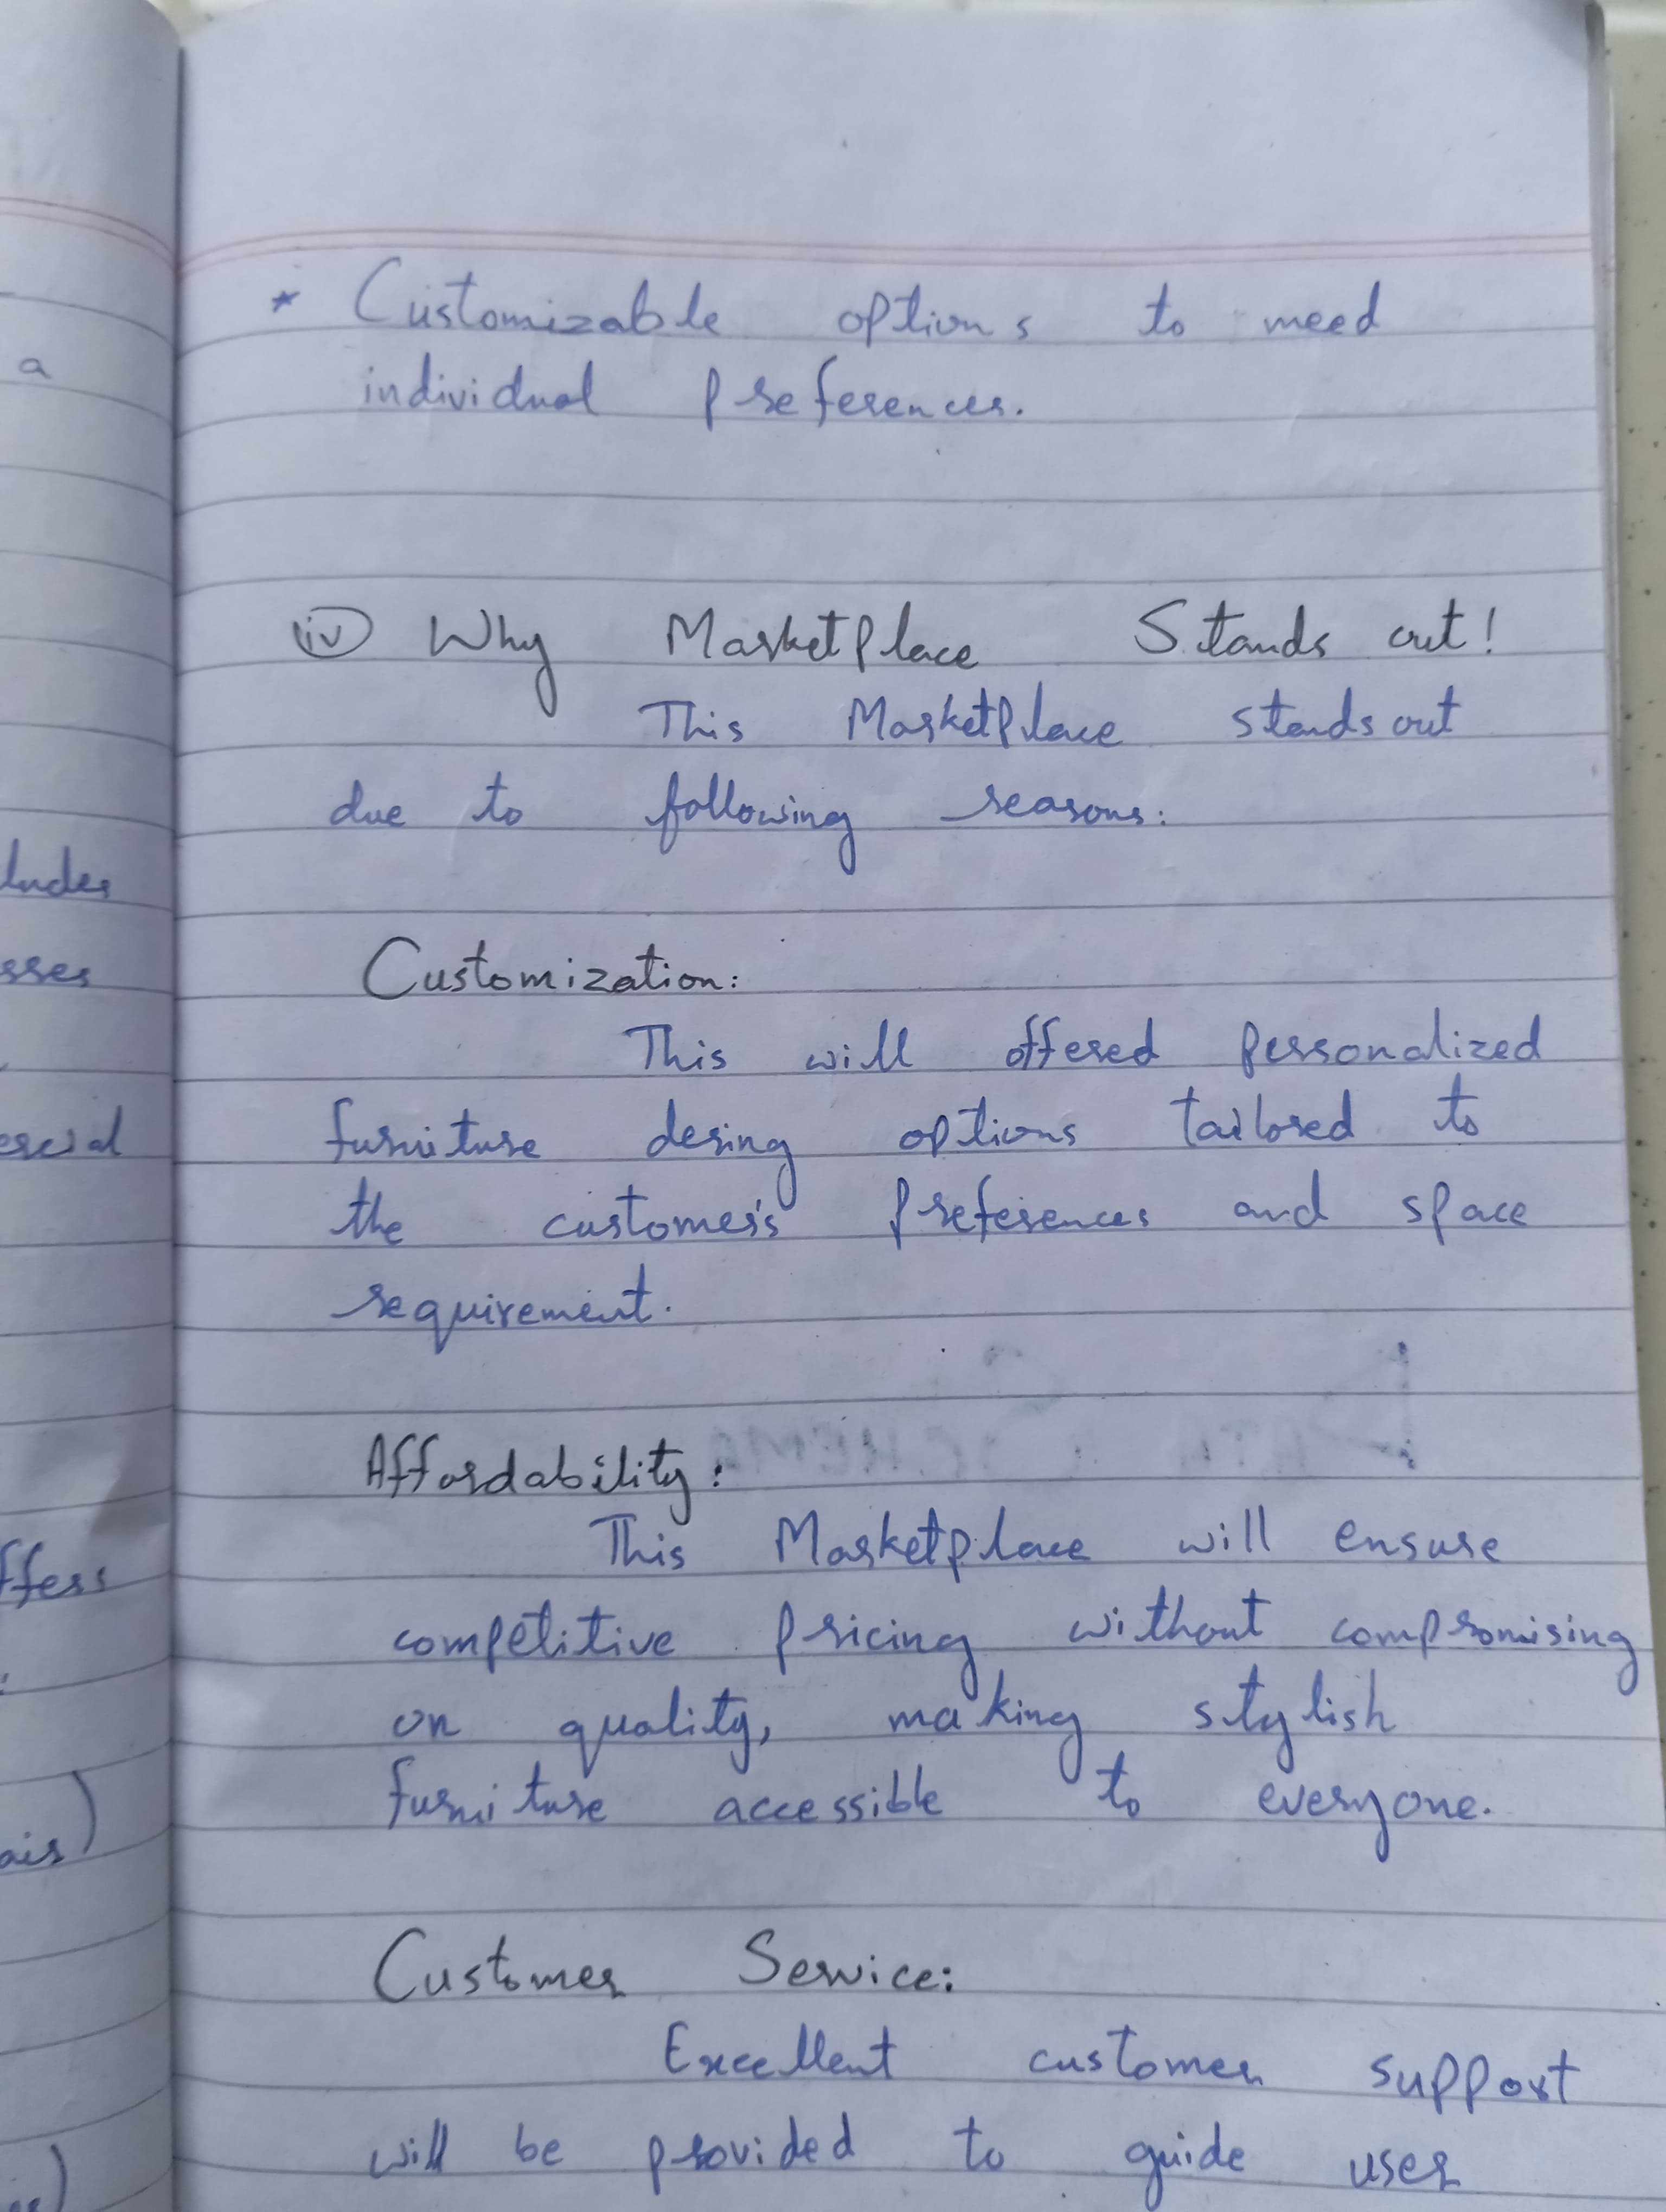 * Customizable options to meed
individual preferences.
(iv) Why Marketplace Stands out!
This Marketplace stands out
due to following reasons:
Customization:
This will offered personalized
furniture desing options tailored to
the customer's preferences and space
requirement.
Affordability:
This Marketplace will ensure
competitive pricing without compromising
on quality, making stylish
furniture accessible to everyone.
Customer Service:
Excellent customer support
will be provided to guide user